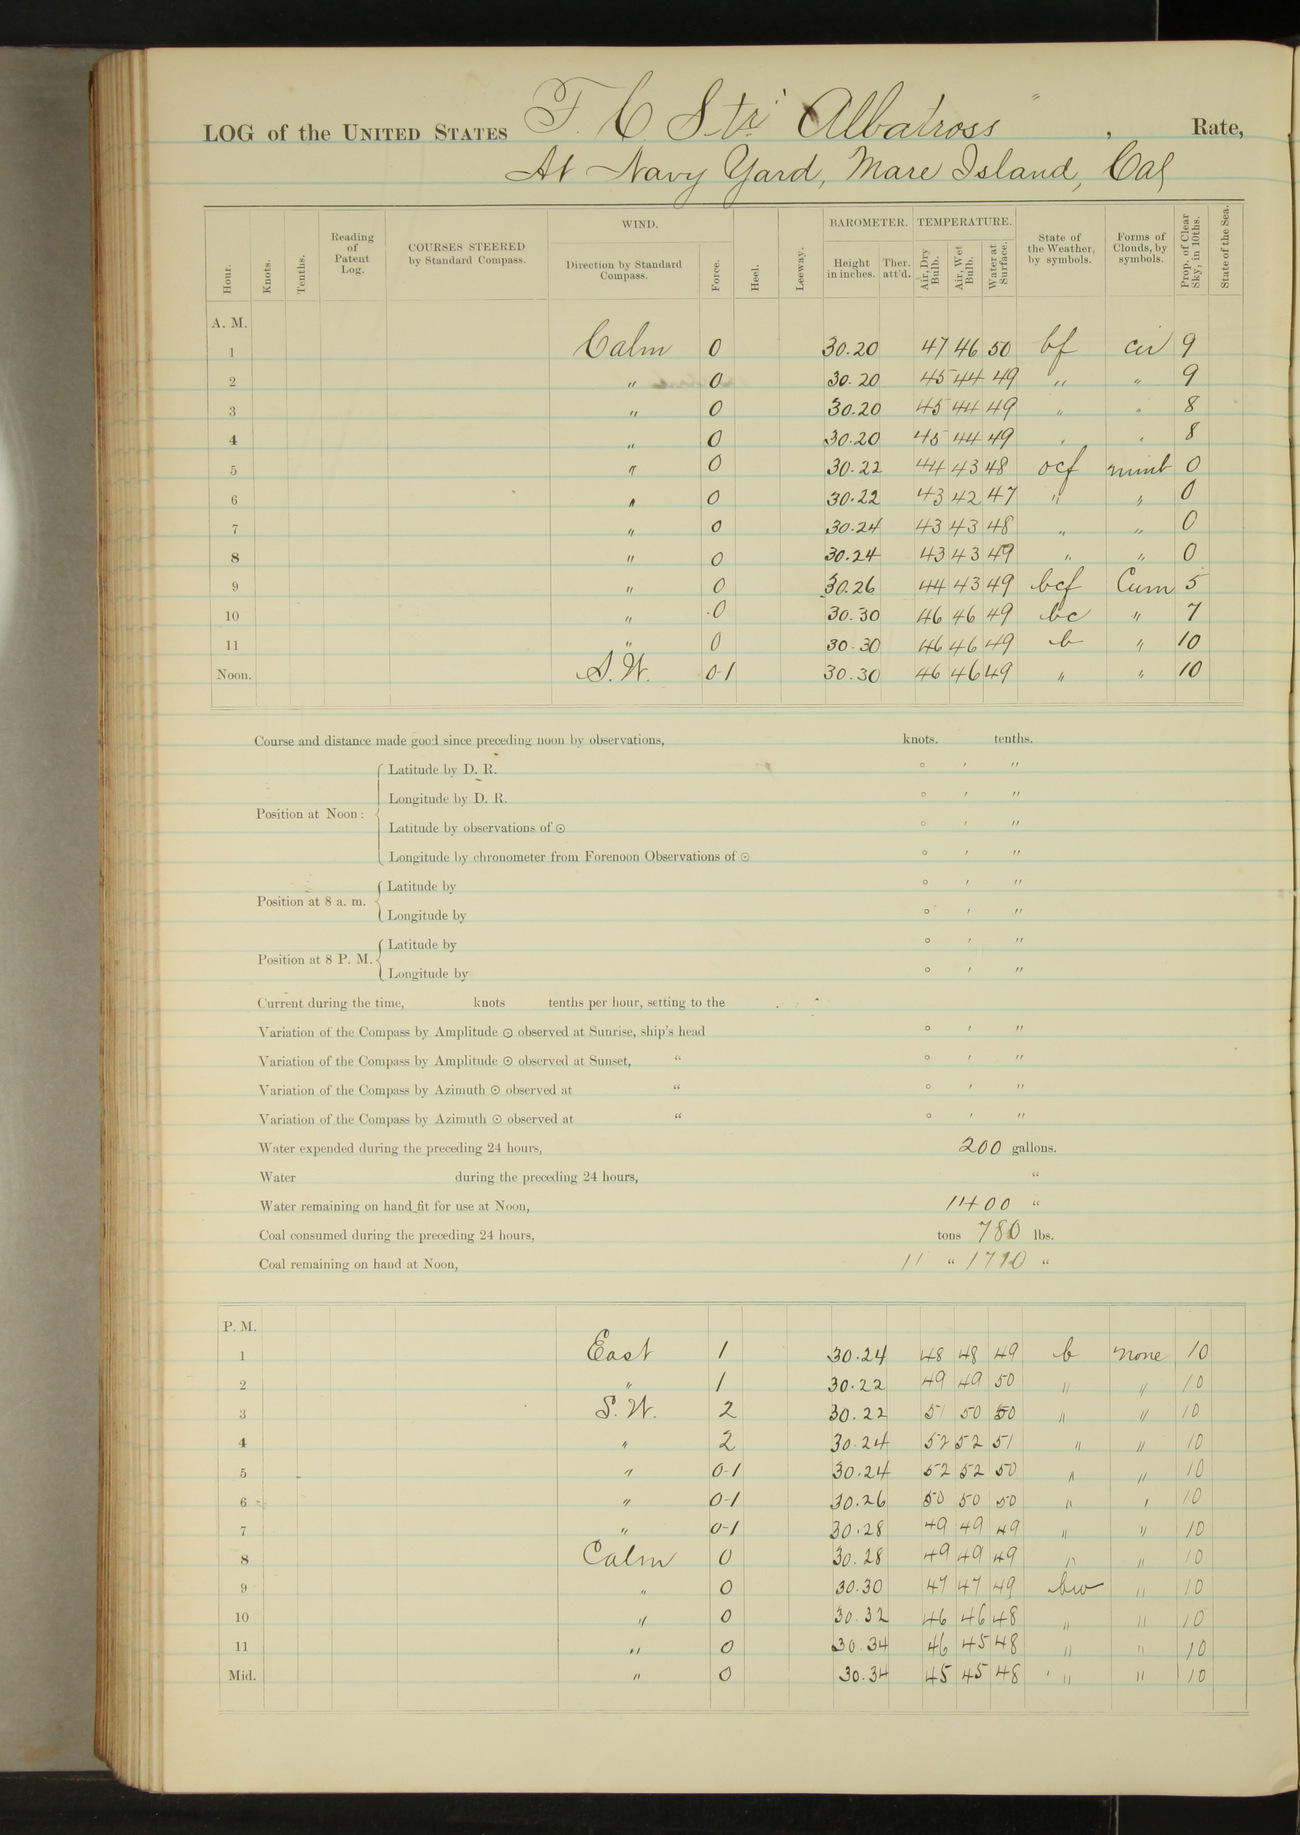 LOG of the UNITED STATES F. C. Str. Albatross , Rate,
At Navy Yard, Mare Island, Cal
Hour. Knots. Tenths. Reading of Patent Log. COURSES STEERED by Standard Compass. WIND. Direction by Standard Compass. Force. Heel. Leeway. BAROMETER. Height in inches. Ther. att'd. TEMPERATURE. Air, Dry Bulb. Air, Wet Bulb. Water at Surface. State of the Weather, by symbols. Forms of Clouds, by symbols. Prop. of Clear Sky, in 10ths. State of the Sea.
A. M.
1 Calm 0 30.20 47 46 50 bf cir 9
2 " 0 30.20 45 44 49 " " 9
3 " 0 30.20 45 44 49 " " 8
4 " 0 30.20 45 44 49 " " 8
5 " 0 30.22 44 43 48 ocf nimb 0
6 " 0 30.22 43 42 47 " " 0
7 " 0 30.24 43 43 48 " " 0
8 " 0 30.24 43 43 49 " " 0
9 " 0 30.26 44 43 49 bcf Cum 5
10 " 0 30.30 46 46 49 bc " 7
11 " 0 30.30 46 46 49 b " 10
Noon. S.W. 0-1 30.30 46 46 49 " " 10
Course and distance made good since preceding noon by observations, knots. tenths.
Latitude by D. R. ° ′ ″
Longitude by D. R. ° ′ ″
Position at Noon :
Latitude by observations of ☉ ° ′ ″
Longitude by chronometer from Forenoon Observations of ☉ ° ′ ″
Latitude by ° ′ ″
Position at 8 a. m.
Longitude by ° ′ ″
Latitude by ° ′ ″
Position at 8 P. M.
Longitude by ° ′ ″
Current during the time, knots tenths per hour, setting to the
Variation of the Compass by Amplitude ☉ observed at Sunrise, ship's head ° ′ ″
Variation of the Compass by Amplitude ☉ observed at Sunset, “ ° ′ ″
Variation of the Compass by Azimuth ☉ observed at “ ° ′ ″
Variation of the Compass by Azimuth ☉ observed at “ ° ′ ″
Water expended during the preceding 24 hours, 200 gallons.
Water during the preceding 24 hours, “
Water remaining on hand fit for use at Noon, 1400 “
Coal consumed during the preceding 24 hours, tons 780 lbs.
Coal remaining on hand at Noon, 11 “ 1710 “
P. M.
1 East 1 30.24 48 48 49 b none 10
2 " 1 30.22 49 49 50 " " 10
3 S.W. 2 30.22 51 50 50 " " 10
4 " 2 30.24 52 52 51 " " 10
5 " 0-1 30.24 52 52 50 " " 10
6 " 0-1 30.26 50 50 50 " " 10
7 " 0-1 30.28 49 49 49 " " 10
8 Calm 0 30.28 49 49 49 " " 10
9 " 0 30.30 47 47 49 bw " 10
10 " 0 30.32 46 46 48 " " 10
11 " 0 30.34 46 45 48 " " 10
Mid. " 0 30.34 45 45 48 " " 10